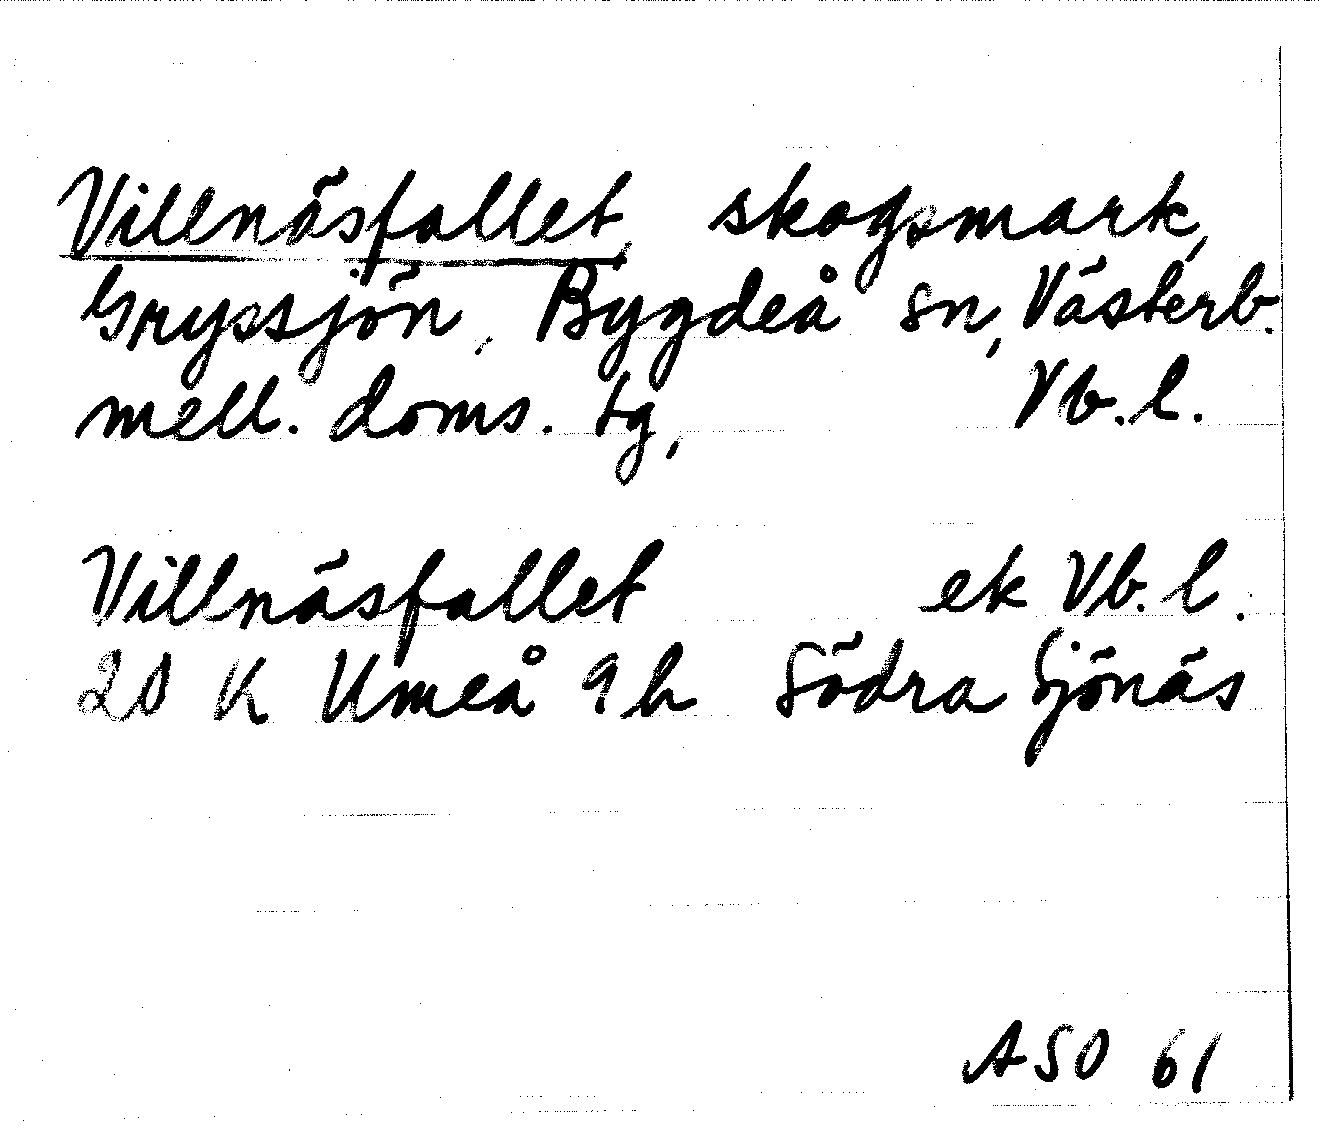 Villnäsfallet, skogsmark,
Gryssjön, Bygdeå sn, Västerb.
mell. doms. tg, Vb. l.
Villnäsfallet ek Vb. l.
20 K Umeå 9 h Södra Sjönäs
ASO 61